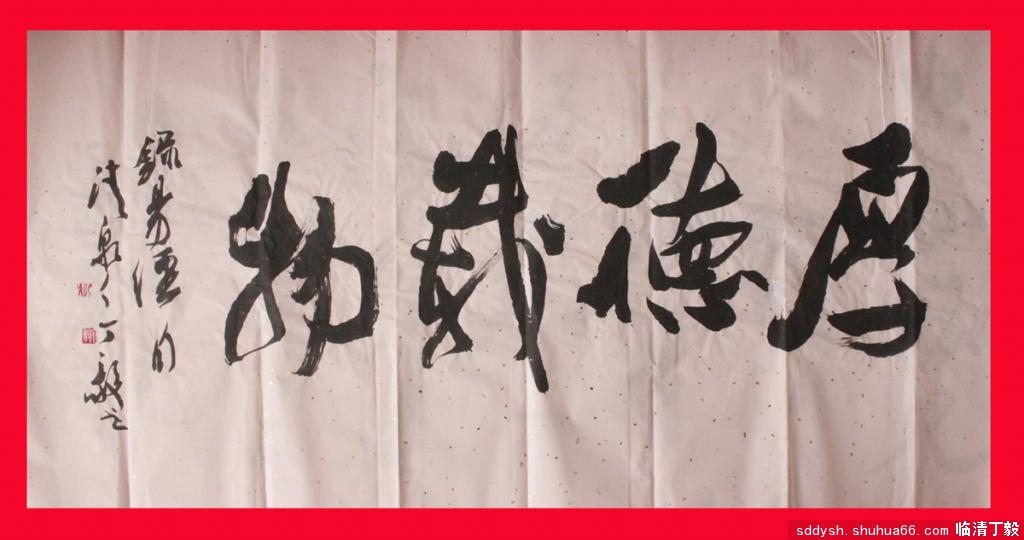 厚德载物
录易经句
清泉山人丁毅书
sddysh.shuhua66.com 临清丁毅